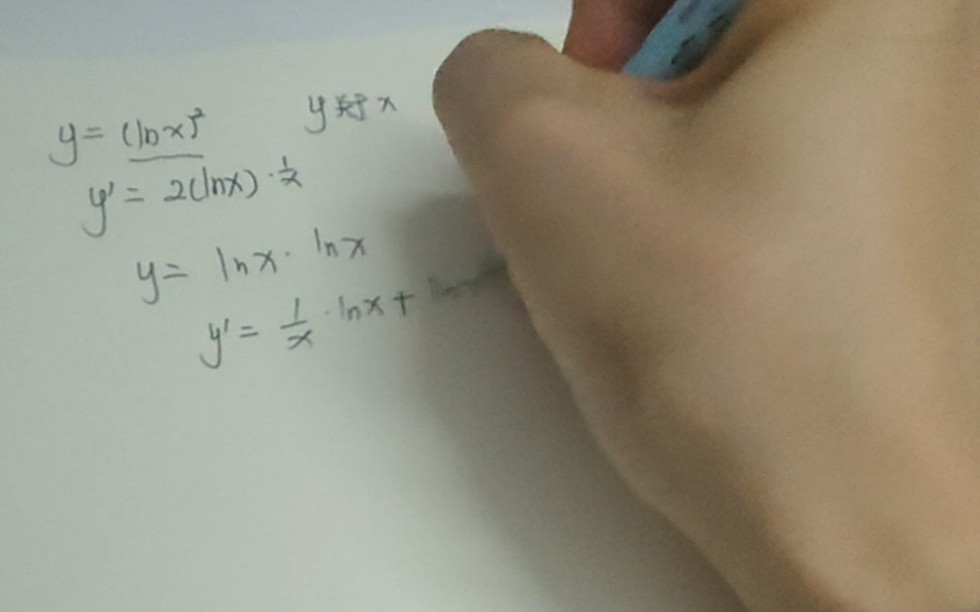 y = (ln x)²
y 对 x
y' = 2(ln x) · 1/x
y = ln x · ln x
y' = 1/x · ln x +